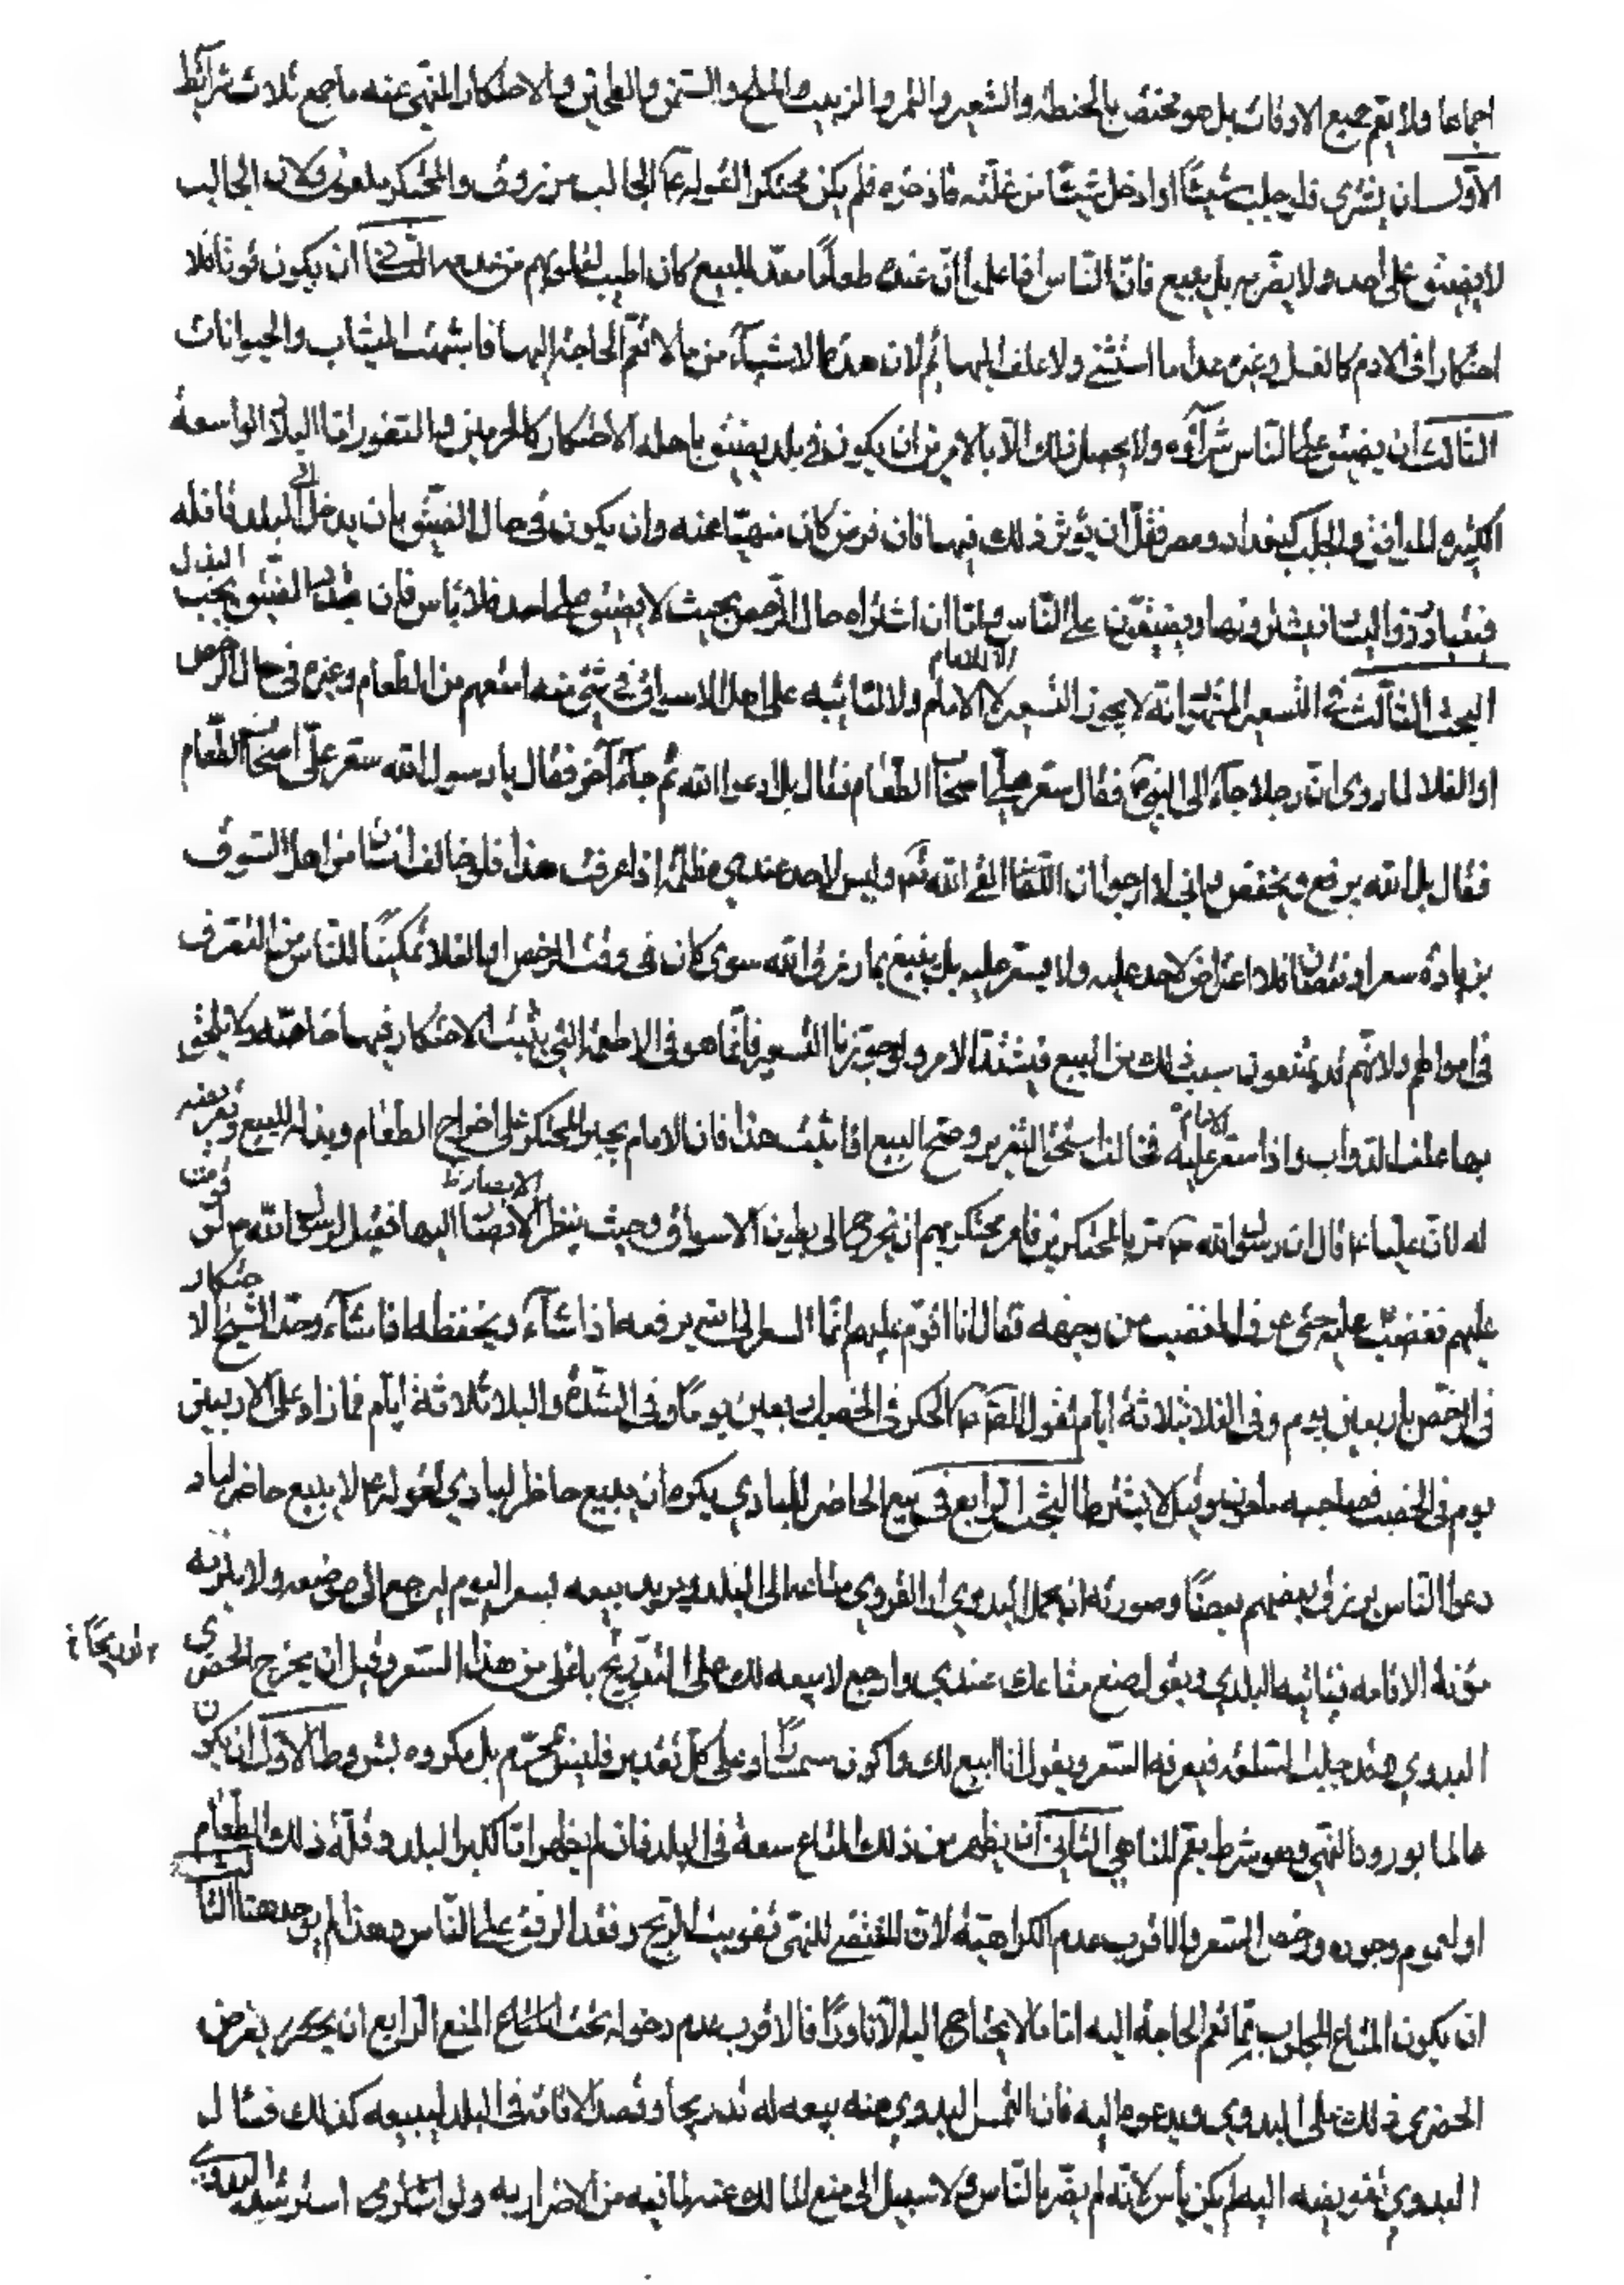 اجماعا ولا يعم جميع الاوقات بل هو مختص بالحنطة والشعير والتمر والزبيب والملح والسمن والعلتين والاحتكار المنهى عنه ما جمع ثلاث شرائط
الاول ان يشترى فلو جلب شيئًا او ادخل شيئًا من غلته فاذخره فلم يكن محتكرا لقوله ع الجالب مرزوق والمحتكر ملعون ولان الجالب
لا يضيق على احد ولا يضر به بل ينفع فان الناس اذا علموا ان عنده طعامًا معدّا للبيع كان اطيب لقلوبهم من عدمه الثانى ان يكون قوتا فلا
احتكار فى الادم كالعسل وغيره عدا ما استثنى ولا علف البهائم لان هذه الاشياء مما لا تعم الحاجة اليها فاشبهت الثياب والحيوانات
الثالث ان يضيق على الناس شراؤه ولا يحصل ذلك الا بالامرين ان يكون فى بلد يضيق باهله الاحتكار كالحرمين والثغور اما البلاد الواسعة
الكثيرة المرافق والجلب كبغداد ومصر فقل ان يؤثر ذلك فيها فان فرض كان منهيًا عنه وان يكون فى حال الضيق بان يدخل الى البلد قافلة
فيتبادر ذوا اليسار فيشترونها ويضيقون على الناس واما ان اشتراه حال الرخص بحيث لا يضيق على احد فلا بأس فان تجدد الضيق يجب البذل
البحث الثالث فى التسعير المشهور انه لا يجوز التسعير لا للامام ولا لنائبه على اهل الاسواق فى شئ من امتعهم من الطعام وغيره فى حال الرخص
او الغلا لما روى ان رجلا جاء الى النبى ص فقال سعر على اصحاب الطعام فقال بل ادعوا الله ثم جاء آخر فقال يا رسول الله سعر على اصحاب الطعام
فقال بل الله يرفع ويخفض وانى لارجوا ان القى الله تعالى وليس لاحد عندى مظلمة اذا عرفت هذا فلو خالف انسان من اهل السوق
بزيادة سعر او نقصان فلا اعتراض لاحد عليه ولا يسعر عليه بل يبيع بما رزق الله سوى كان فى وقت الرخص او الغلا تمكينًا للناس من التصرف
فى اموالهم ولانهم قد يمتنعون بسبب ذلك من البيع فيشتد الامر ولو جوزنا التسعير فانما هو فى الاطعمة التى يثبت الاحتكار فيها خاصة ولا يلحق
بها علف الدواب واذا سعر الامام عليه فخالف استحق التعزير وصح البيع اذا ثبت هذا فان الامام يجبر المحتكر على اخراج الطعام وبذله للبيع وتعريضه
له لان عليا ع قال ان رسول الله ص مر بالمحتكرين فامر بحتكرتهم ان تخرج الى بطون الاسواق وحيث ينظر الابصار اليها فقيل لرسول الله ص لو قومت
عليهم فغضب عليه حتى عرف الغضب من وجهه فقال انا اقوم عليهم انما السعر الى الله يرفعه اذا شاء ويخفظه اذا شاء وحد الشيخ الاحتكار
فى الرخص باربعين يوم وفى الغلا بثلاثة ايام لقول الصادق ع الحكرة فى الخصب اربعين يومًا وفى الشدة والبلا ثلاثة ايام فما زاد على الاربعين
يوم فى الخصب فصاحبه ملعون وقيل لا يشترط البحث الرابع فى بيع الحاضر للبادى يكره ان يبيع حاظر لبادى لقوله ع لا يبيع حاضر لباد
دعوا الناس يرزق بعضهم بعضًا وصورته ان يحمل البدوى او القروى متاعه الى البلد ويريد بيعه بسعر اليوم ليرجع الى موضعه ولا يلزمه
مؤنة الاقامة فيأتيه البلدى ويقول ضع متاعك عندى وارجع لابيعه لك على التدريج باغلى من هذا السعر وقيل ان يخرج الحضرى
تدريجًا
البدوى وقد جلب السلعة فيعرفه السعر ويقول انا ابيع لك واكون سمسارًا وعلى كل تقدير فليس بمحرم بل مكروه بشروط الاول ان يكون
عالما بورود النهى وهو شرط يعم المناهى الثانى ان يظهر من ذلك المتاع سعة فى البلد فان لم يظهر اما لكبر البلد وقلة ذلك الطعام
او لعموم وجوده ورخص السعر فالاقرب عدم الكراهية لان المقتضى للنهى تفويت الربح وفقد الرفق على الناس وهذا لم يوجد هنا الثالث
ان يكون المتاع المجلوب مما تعم الحاجة اليه اما ما لا يحتاج اليه الا نادرًا فالاقرب عدم دخوله تحت المنع الرابع ان يعرض
الحضرى ذلك على البدوى ويدعوه اليه فان التمس البدوى منه بيعه له تدريجا وقصد الاقامة فى البلد ليبيعه كذلك فسأل
البدوى تفويضه اليه لم يكن بأس لانه لم يضر بالناس ولا سبيل الى منع المالك عنه لما فيه من الاضرار به ولو استشارى البدوى